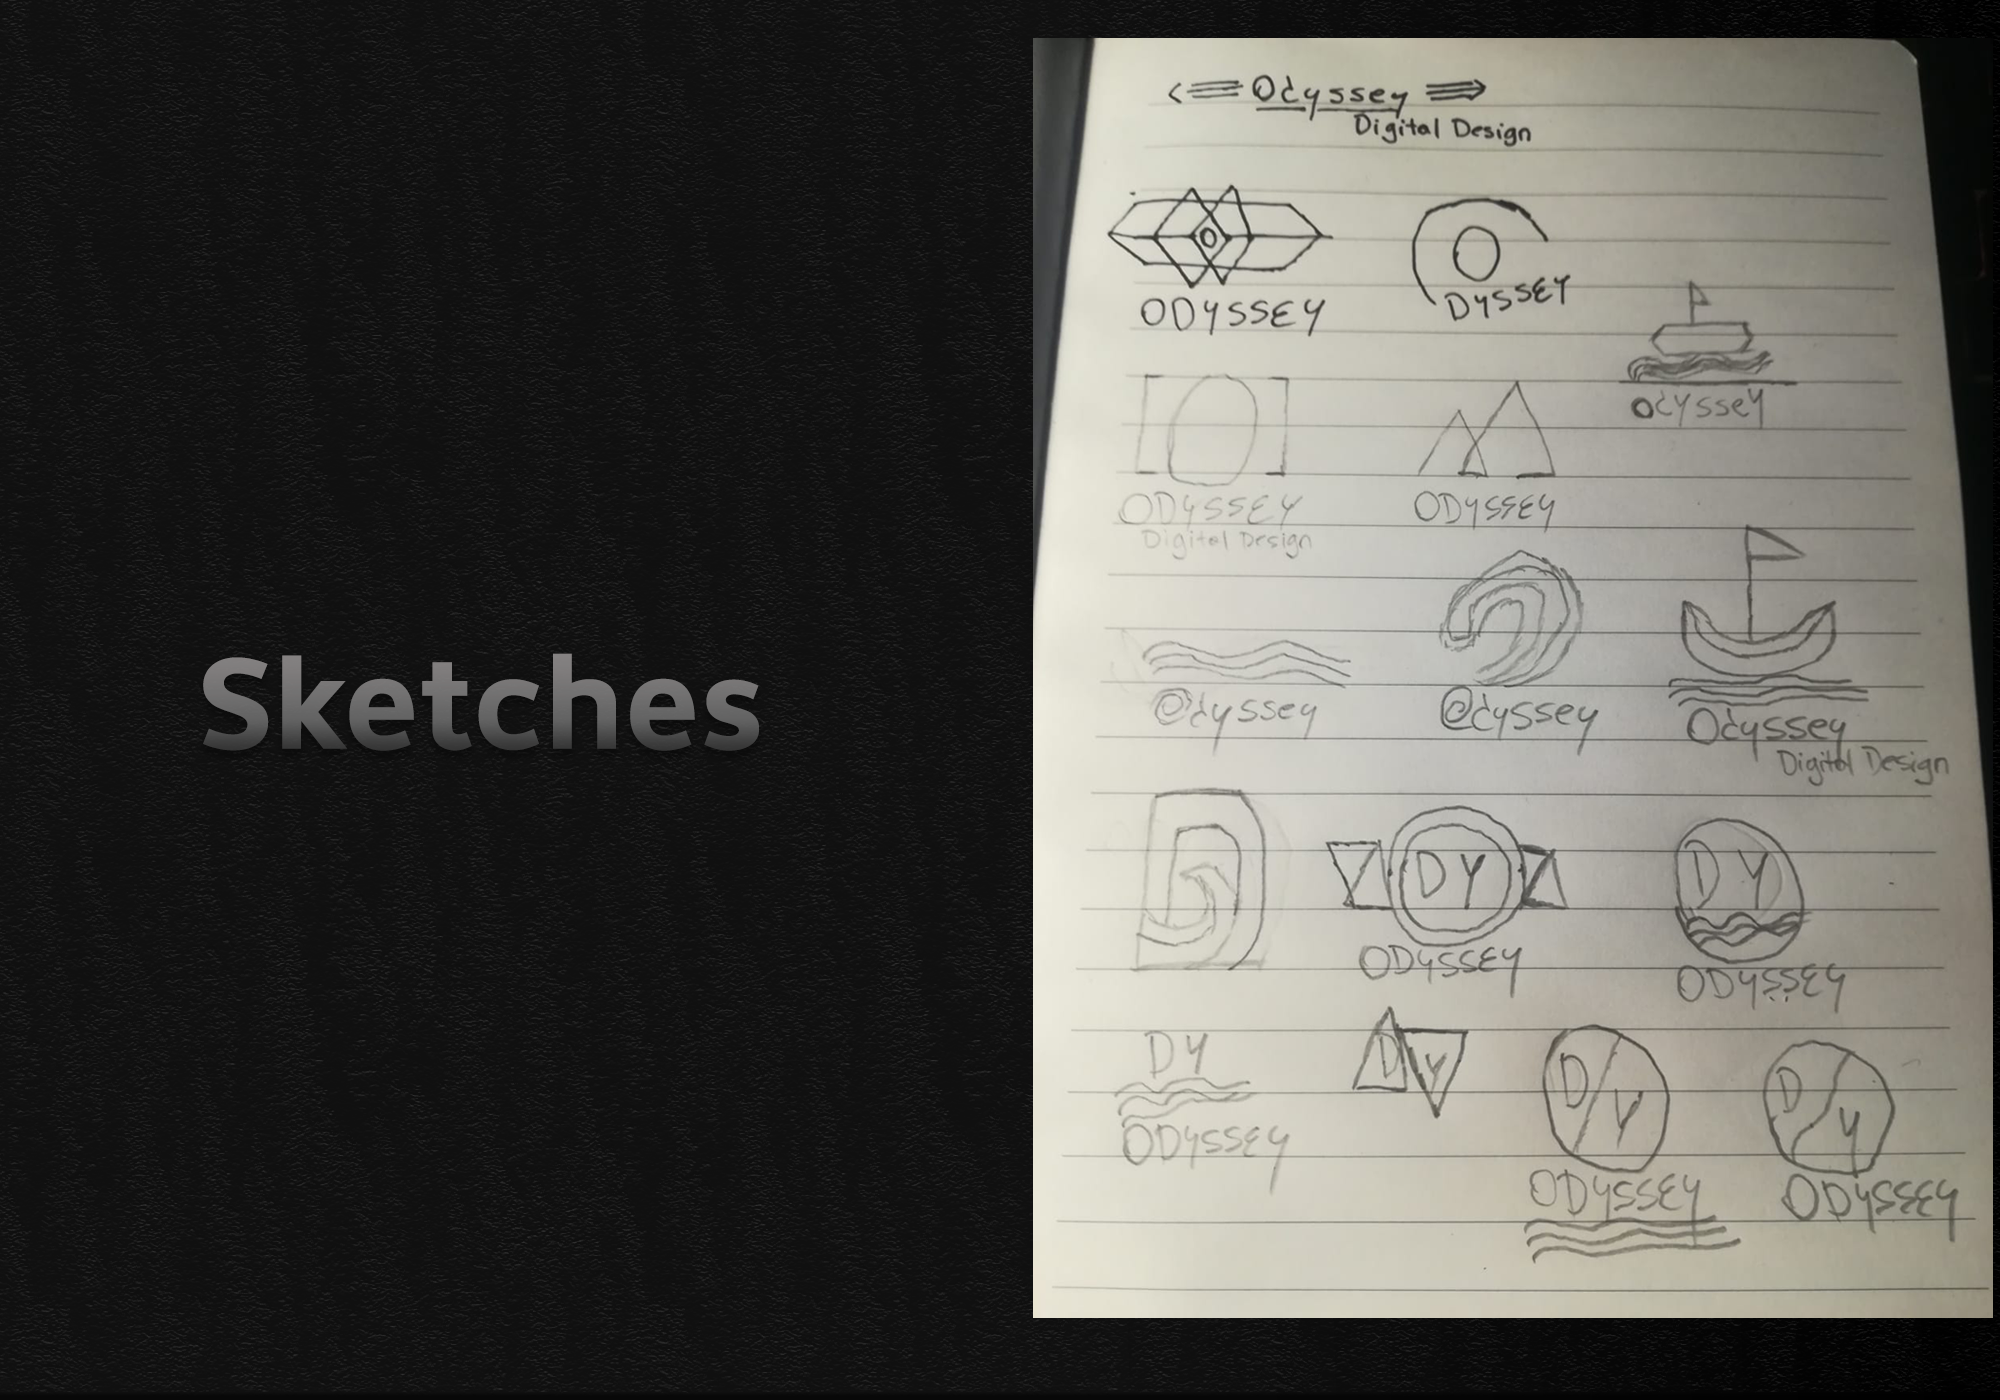 Sketches
Odyssey
Digital Design
O
ODYSSEY
O
DYSSEY
Odyssey
[O]
ODYSSEY
Digital Design
ODYSSEY
Odyssey
Odyssey
Odyssey
Digital Design
D Y
ODYSSEY
D Y
ODYSSEY
DY
ODYSSEY
D Y
D/Y
ODYSSEY
D Y
ODYSSEY